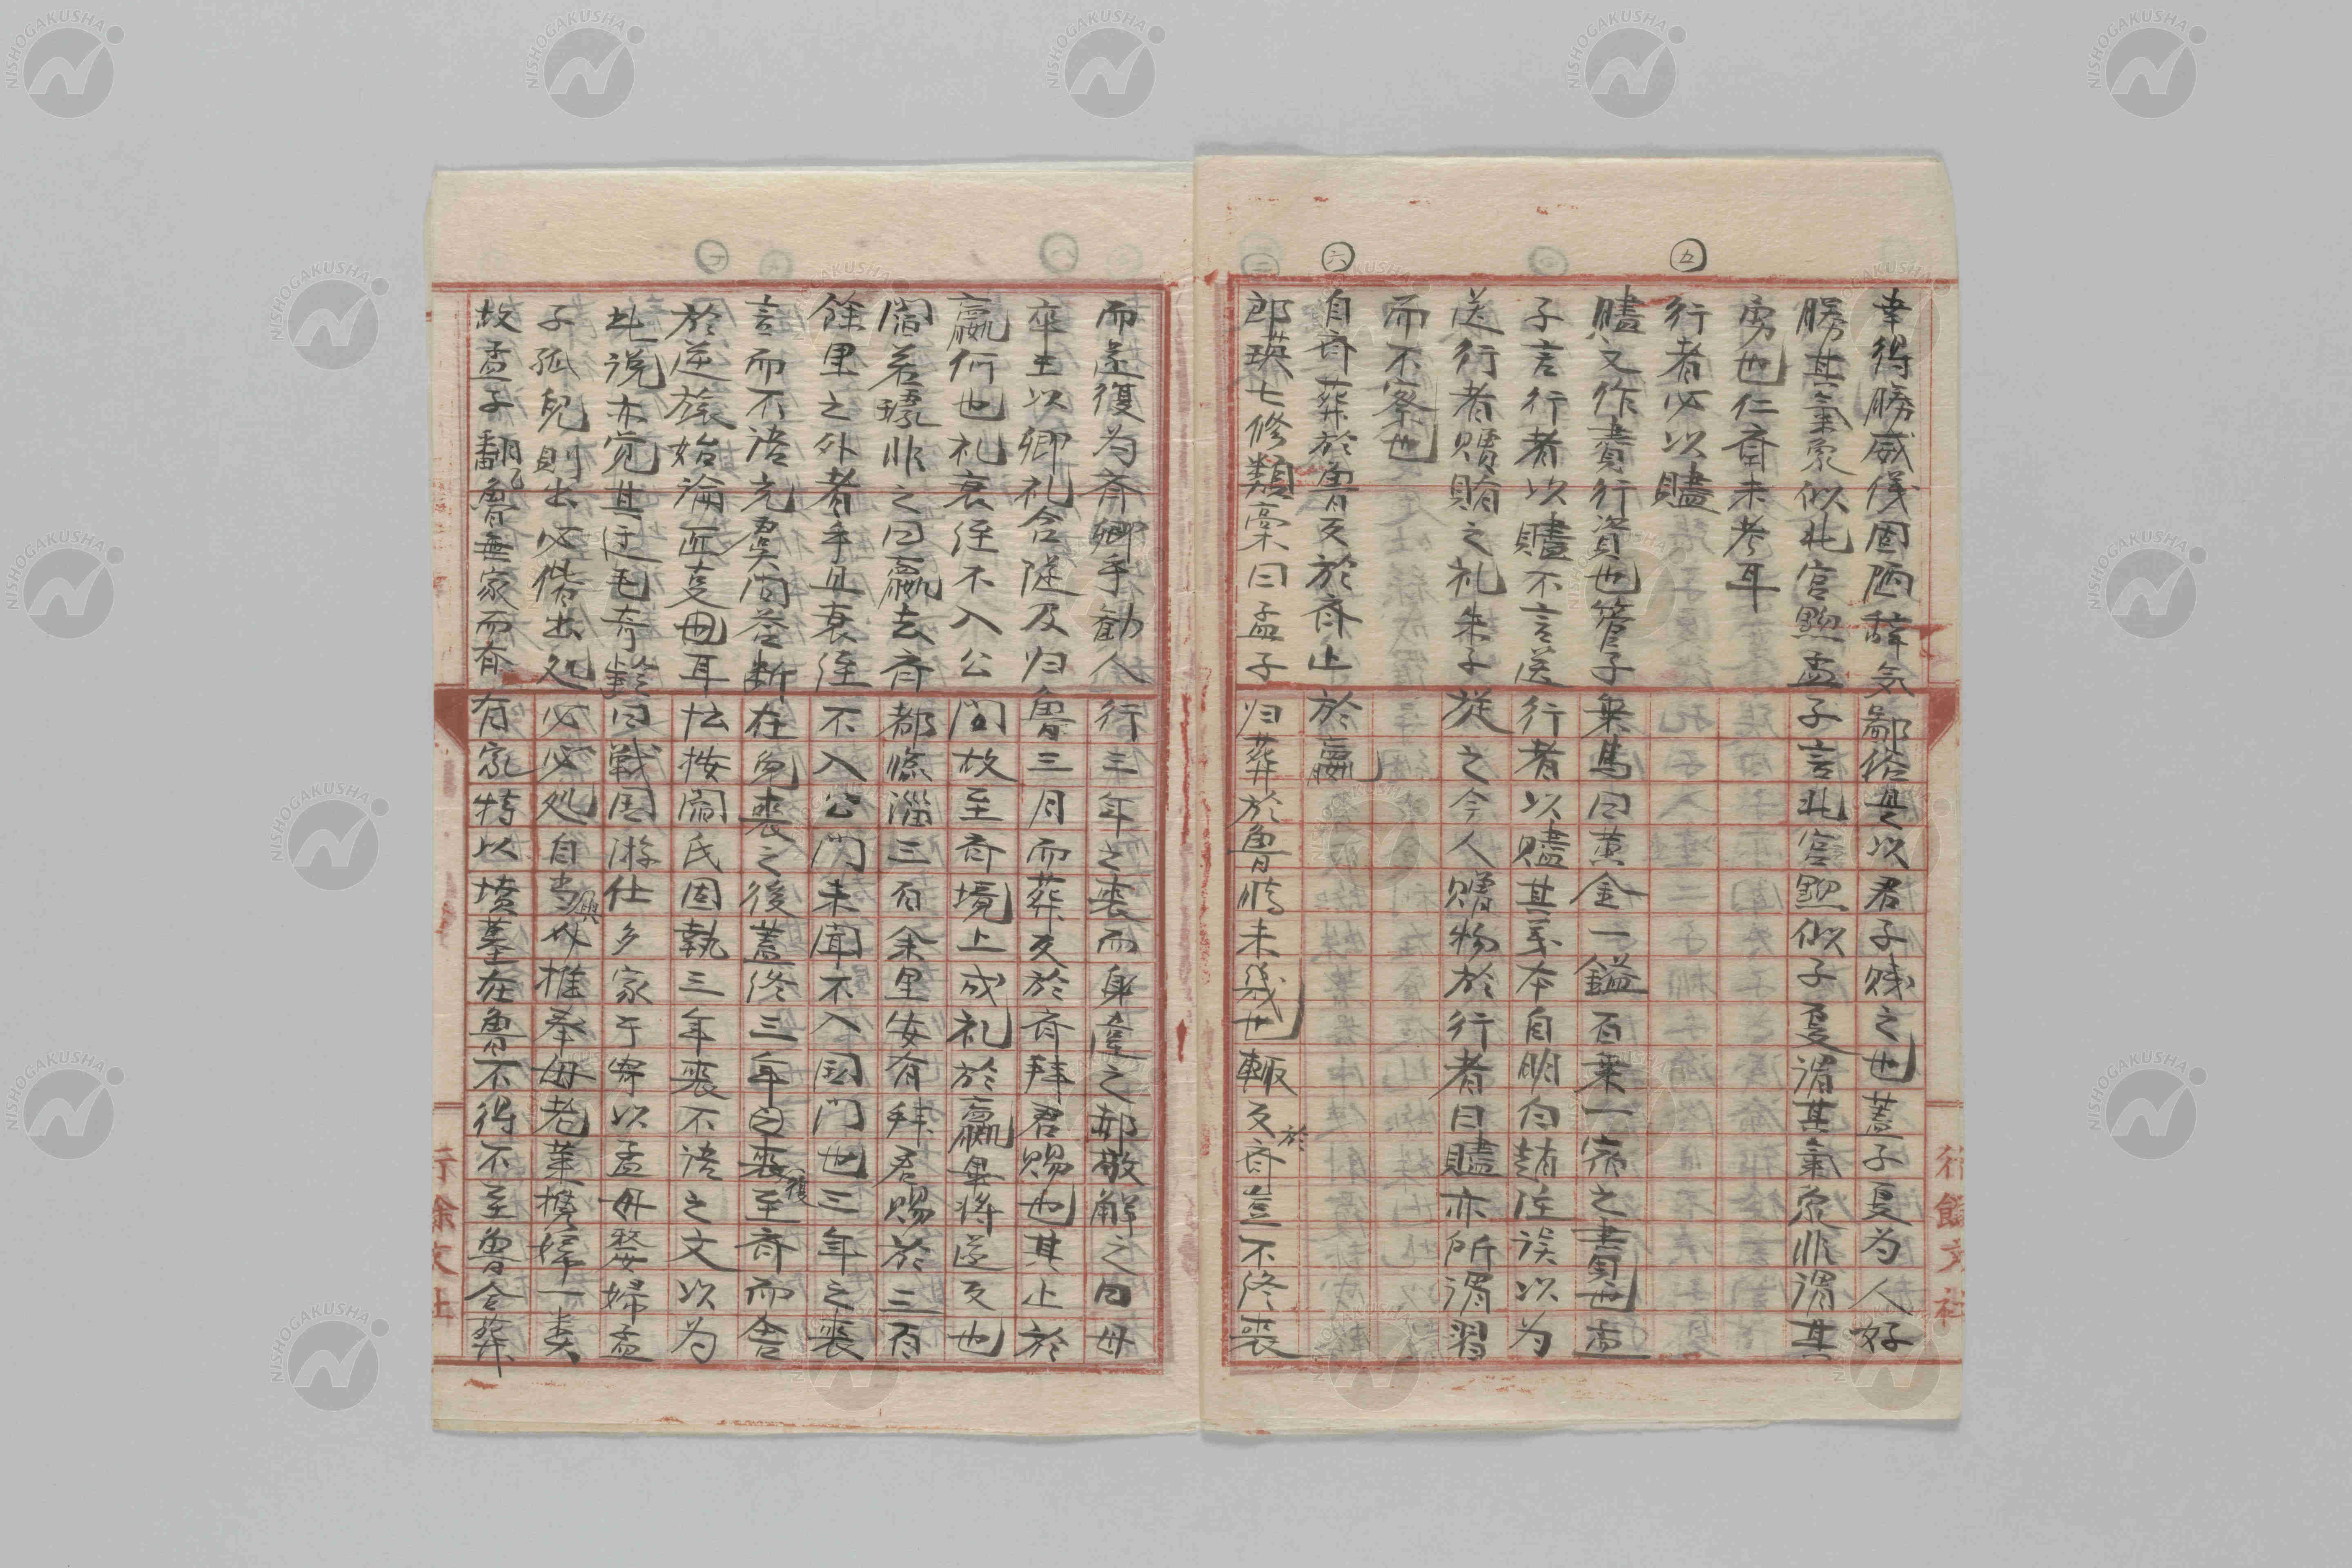 五
六
幸得勝威儀固陋辞気鄙俗是以君子賤之也蓋子夏為人好
勝其氣象似北宮黝孟子言北宮黝似子夏謂其氣象非謂其
勇也仁斎未考耳
行者必以贐
贐文作賮行資也管子乗馬曰黄金一鎰百乗一宿之賮也孟
子言行者以贐不言送行者以贐其義本自明白趙注誤以為
送行者贈賄之礼朱子従之今人贈物於行者曰贐亦所謂習
而不察也
自斉葬於魯反於斉止於嬴
郎瑛七修類稾曰孟子归葬於魯時未幾也輙反於斉豈不終喪
而遂復為斉卿乎勧人行三年之喪而身違之郝敬解之曰母
卒王以卿礼含隧及归魯三月而葬反於斉拝君賜也其止於
嬴何也礼衰絰不入公門故至斉境上成礼於嬴畢将遂反也
閻若璩非之曰嬴去斉都臨淄三百余里安有拝君賜於三百
餘里之外者乎且衰絰不入公門未聞不入国門也三年之喪
言而不語充虞問答断在免喪之後蓋終三年之喪復至斉而舎
於逆旅始論匠事也耳仏按閻氏固執三年喪不語之文以為
此説亦覚其迂毛奇齢曰戦国游仕多家于寄以孟母嫠婦孟
子孤児則出必偕出処必必処自当與仏推奉母老莱携嫁一妻
故孟子翻已魯無家而斉有家特以墳墓在魯不得不至魯合葬
行餘文社